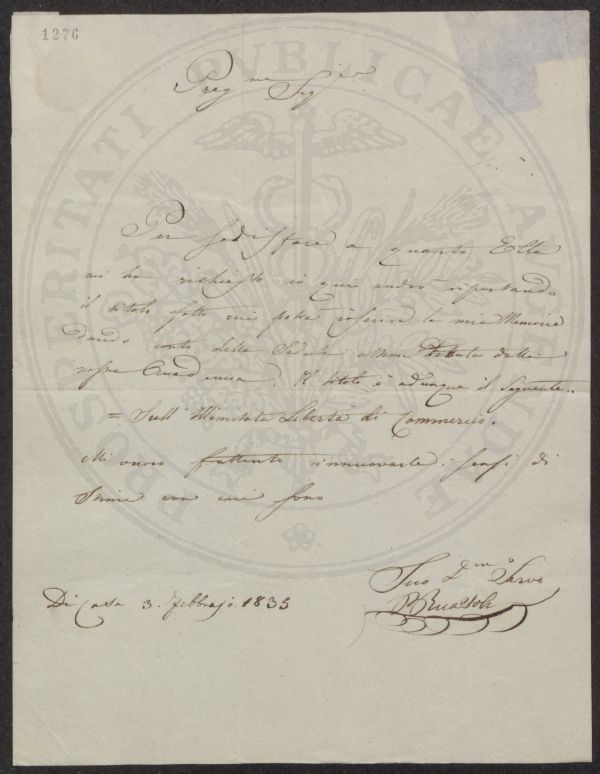 1276
PROSPERITATI PUBLICAE AUGENDAE
Preg.mo Sig.re
Per sodisfare a quanto Ella
mi ha richiesto io qui andrò riportando
il titolo sotto cui potrà inserire la mia Memoria
dando conto delle Sedute ultime tenute dalla
nostra Accademia. Il titolo è adunque il seguente.
= Sull'Illimitata Libertà di Commercio.
Mi onoro frattanto rinnuovarle i sensi di
Stima con cui sono
Suo D.mo Servo
Di Casa 3. Febbrajo 1835